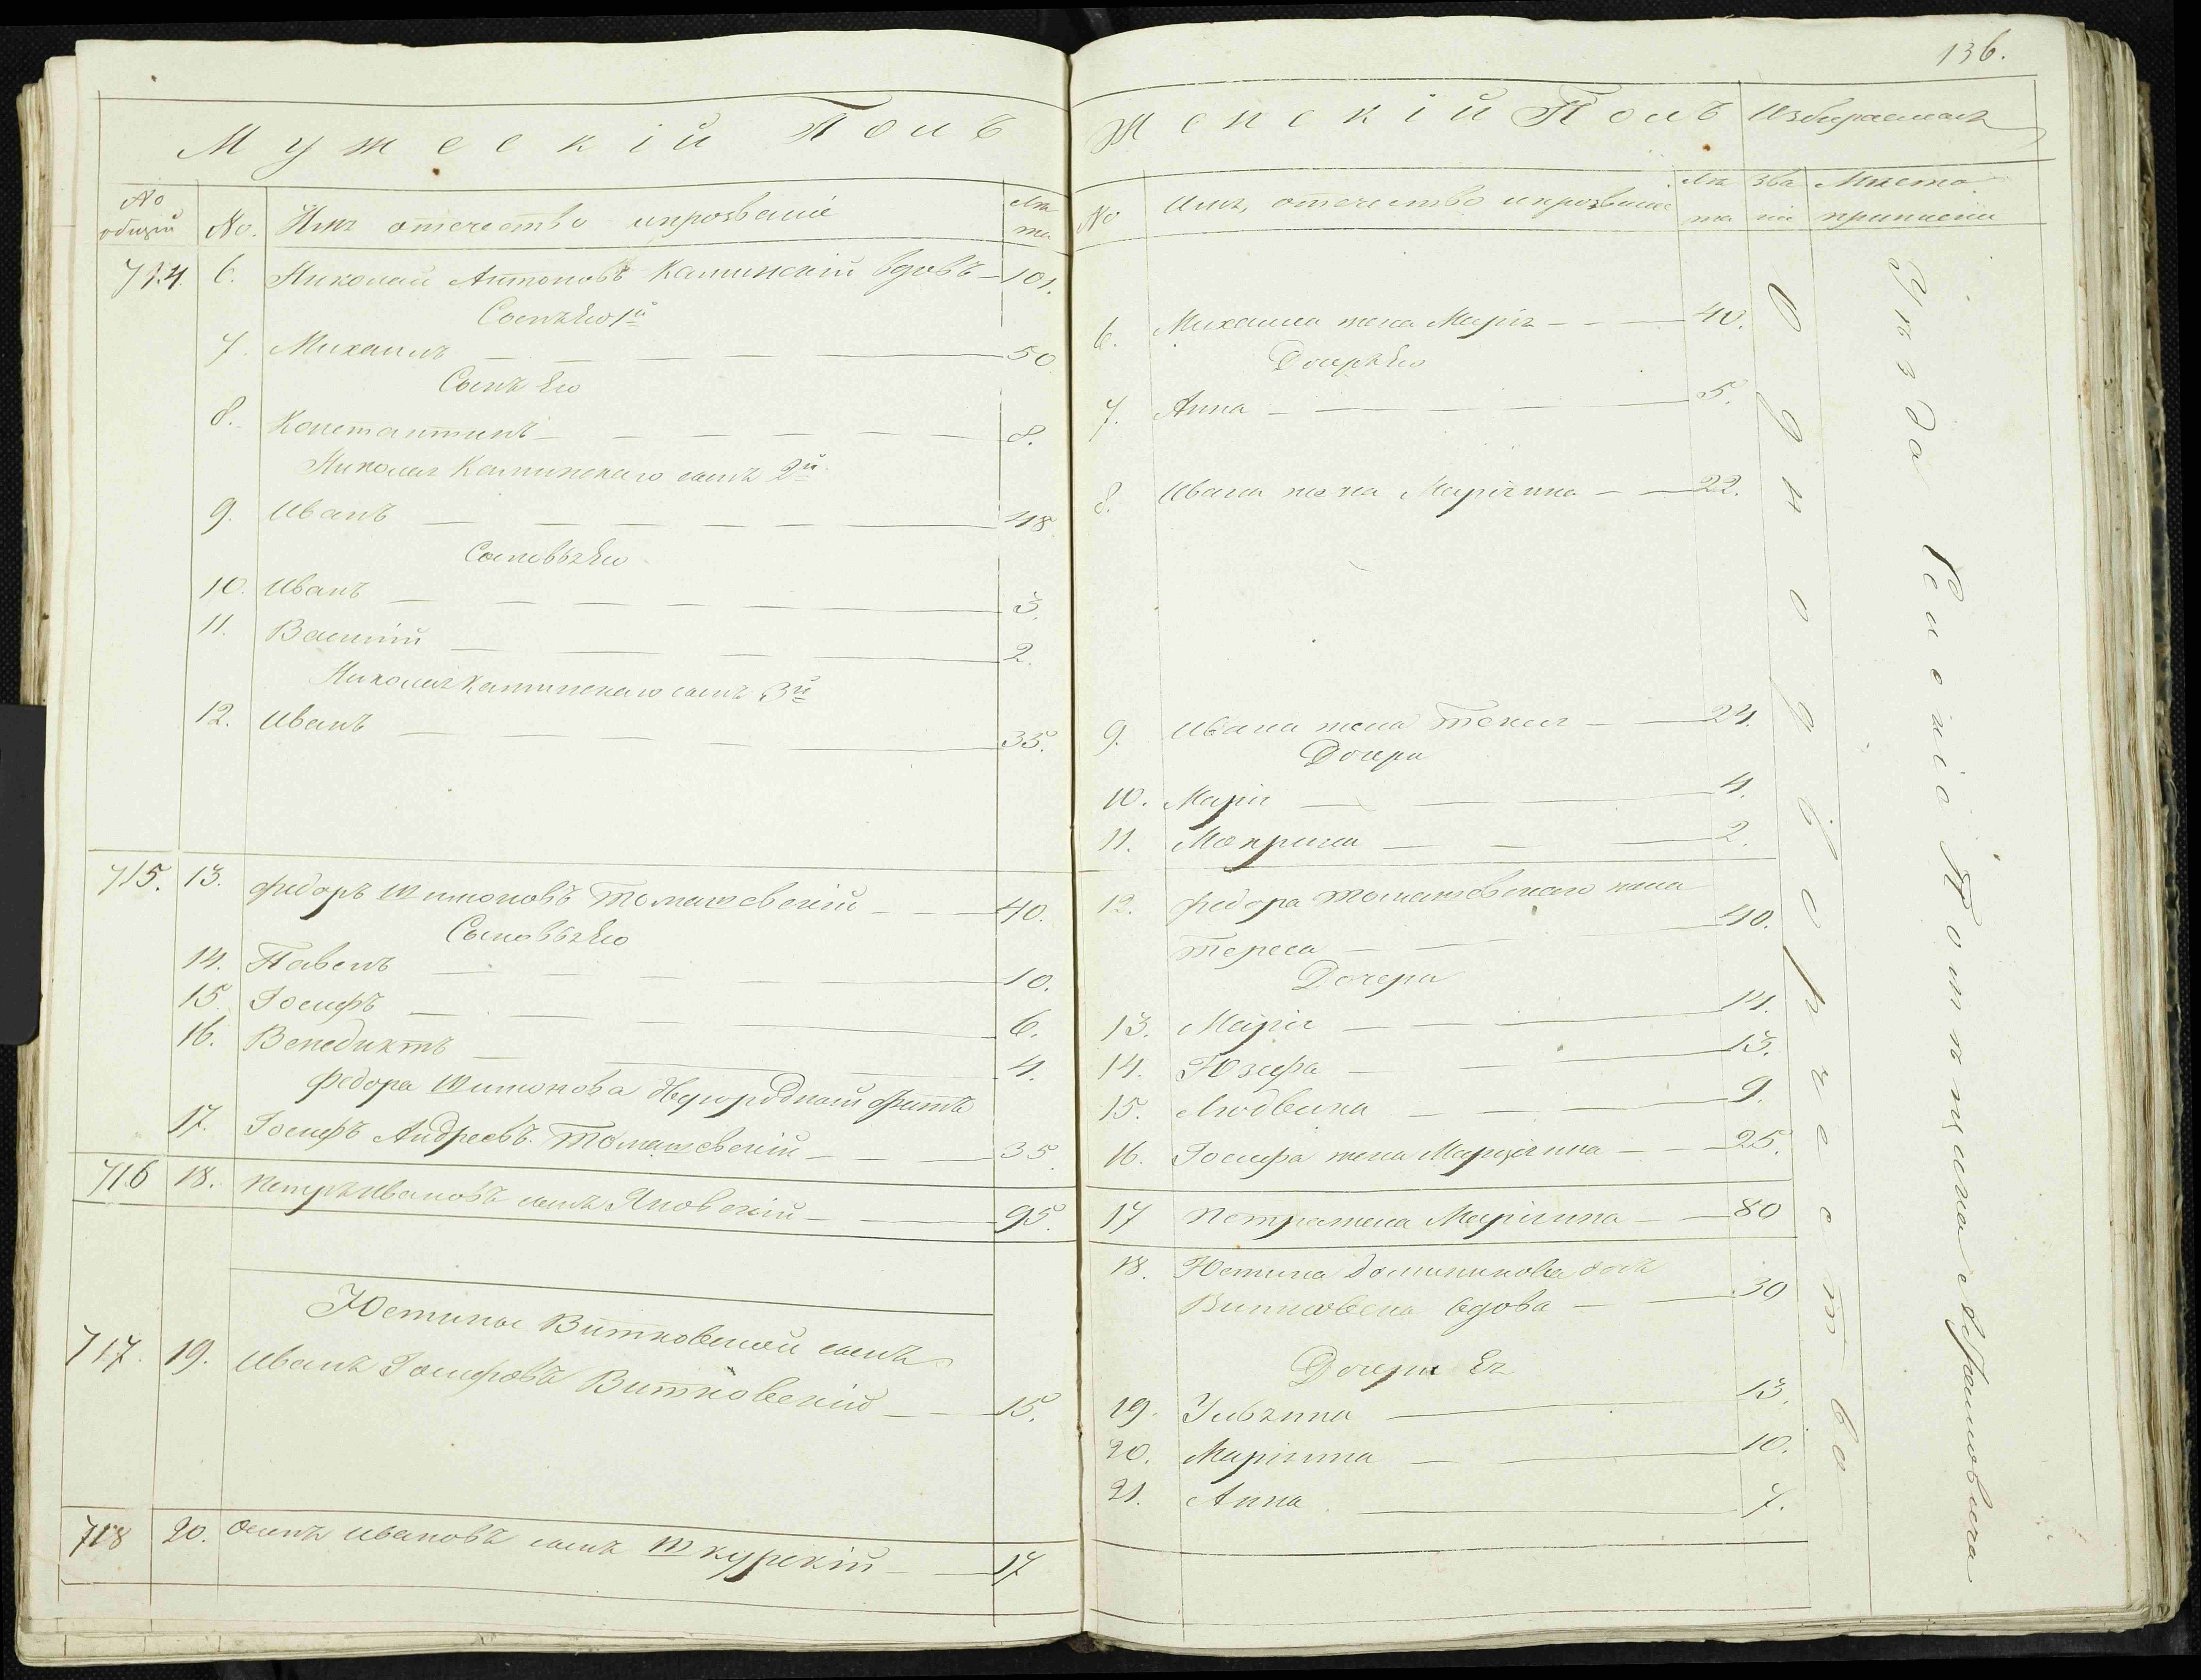 Мужескій Полъ
№ общій
№.
Имя отечество ипрозваніе
Лѣта
714. 6. Николай Антоновъ Каминскій вдовъ — 101.
Сынъ Его 1й
7. Михаилъ — 50.
Сынъ Его
8. Константинъ — 8.
Николая Каминскаго сынъ 2й
9. Иванъ — 48.
Сыновья Его
10. Иванъ — 3.
11. Василій — 2.
Николая Каминскаго сынъ 3й
12. Иванъ — 35.
715. 13. Федоръ Шимоновъ Томашевскій — 40.
Сыновья Его
14. Павелъ — 10.
15. Іосифъ — 6.
16. Венедиктъ — 4.
Федора Шимонова двуюродный братъ
17. Іосифъ Андреевъ Томашевскій — 35.
716 18. Петръ Ивановъ сынъ Яновскій — 95.
Юстины Витковской сынъ
717. 19. Иванъ Іосифовъ Витковскій — 15.
718 20. Осипъ Ивановъ сынъ Шкурскій — 17
136.
Женскій Полъ
Избираемая
№
Имя, отечество ипрозваніе
Лѣта
Званіе
Мѣсто приписки
6. Михаила жена Марія — 40.
Дочерь Его
7. Анна — 5.
8. Ивана жена Маріанна — 22.
9. Ивана жена Текля — 24.
Дочери
10. Марія — 4.
11. Макрина — 2.
12. Федора Томашевскаго жена
Тереса — 40.
Дочери
13. Марія — 14.
14. Юзефа — 13.
15. Людвика — 9.
16. Іосифа жена Маріанна — 25.
17 Петра жена Маріанна — 80
18. Юстина Доминикова дочь
Витковска вдова — 30
Дочери Ея
19. Ульяна — 13.
20. Маріанна — 10.
21. Анна — 7.
Однодворчество
Уѣзда